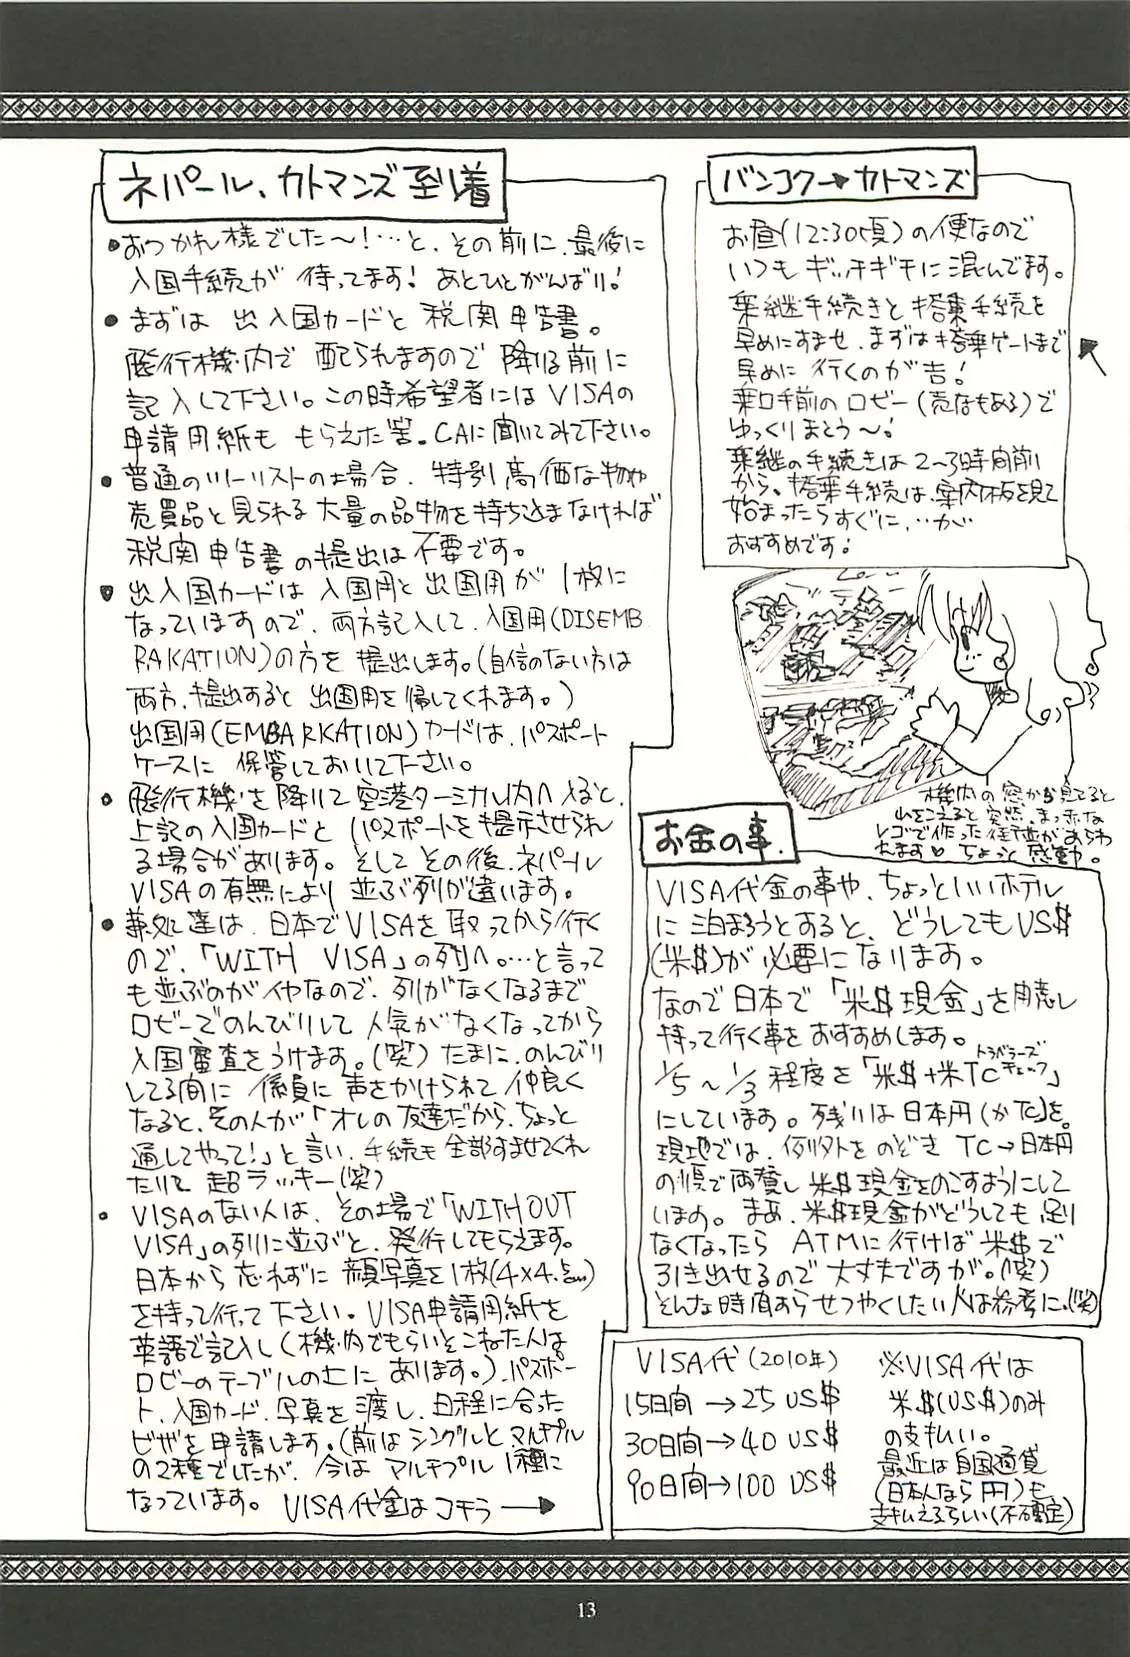 バンコク→カトマンズ
お昼(12:30頃)の便なので
いつもギッチギチに混んでます。
乗継手続きと搭乗手続を
早めにすませ、まずは搭乗ゲートまで
早めに行くのが吉!
乗口手前のロビー(売店もある)で
ゆっくりまとう〜!
乗継の手続きは2〜3時間前
から、搭乗手続は、案内板を見て
始まったらすぐに、…が
おすすめです!
機内の窓から見てると
山をこえると突然、まっ赤な
レゴで作った街並があらわ
れます♡ ちょっと感動。
ネパール、カトマンズ到着
●おつかれ様でした〜!…と、その前に、最後に
入国手続が 待ってます! あとひとがんばり!
●まずは 出入国カードと 税関申告書。
飛行機内で 配られますので 降りる前に
記入して下さい。この時希望者にはVISAの
申請用紙も もらえた筈。CAに聞いてみて下さい。
●普通のツーリストの場合、特別高価な物や
売買品と見られる大量の品物を持ち込まなければ
税関申告書の提出は不要です。
●出入国カードは入国用と出国用が1枚に
なっていますので、両方記入して、入国用(DISEMB
RAKATION)の方を提出します。(自信のない方は
両方、提出すると出国用を帰してくれます。)
出国用(EMBARKATION)カードは、パスポート
ケースに 保管しておいて下さい。
●飛行機を降りて空港ターミナル内へ入ると、
上記の入国カードとパスポートを提示させられ
る場合があります。そしてその後、ネパール
VISAの有無により並ぶ列が違います。
●華処達は、日本でVISAを取ってから行く
ので、「WITH VISA」の列へ。…と言って
も並ぶのがイヤなので、列がなくなるまで
ロビーでのんびりして人気がなくなってから
入国審査をうけます。(笑)たまに、のんびり
してる間に 係員に声をかけられて仲良く
なると、その人が「オレの友達だから、ちょっと
通してやって!」と言い、手続も全部すませてくれ
たりして 超ラッキー(笑)
●VISAのない人は、その場で「WITHOUT
VISA」の列に並ぶと、発行してもらえます。
日本から忘れずに顔写真を1枚(4×4.5cm)
を持って行って下さい。VISA申請用紙を
英語で記入し(機内でもらいそこねた人は
ロビーのテーブルの上にあります。)、パスポー
ト、入国カード、写真を渡し、日程に合った
ビザを申請します。(前はシングルとマルチプル
の2種でしたが、今はマルチプル1種に
なっています。 VISA代金はコチラ→
お金の事。
VISA代金の事や、ちょっといいホテル
に泊まろうとすると、どうしてもUS$
(米$)が必要になります。
なので日本で「米$現金」を用意し
持って行く事をおすすめします。
1/5〜1/3程度を「米$+米TCトラベラーズチェック」
にしています。残りは日本円(かTC)を。
現地では、例外をのぞき TC→日本円
の順で両替し 米$現金をのこすようにして
います。まあ、米$現金がどうしても足り
なくなったら ATMに行けば米$で
引き出せるので大丈夫ですが。(笑)
そんな時間あらせつやくしたい人は参考に。(笑)
VISA代(2010年)
15日間→25 US$
30日間→40 US$
90日間→100 US$
※VISA代は
米$(US$)のみ
の支払い。
最近は自国通貨
(日本人なら円)も
支払えるらしい(不確定)
13